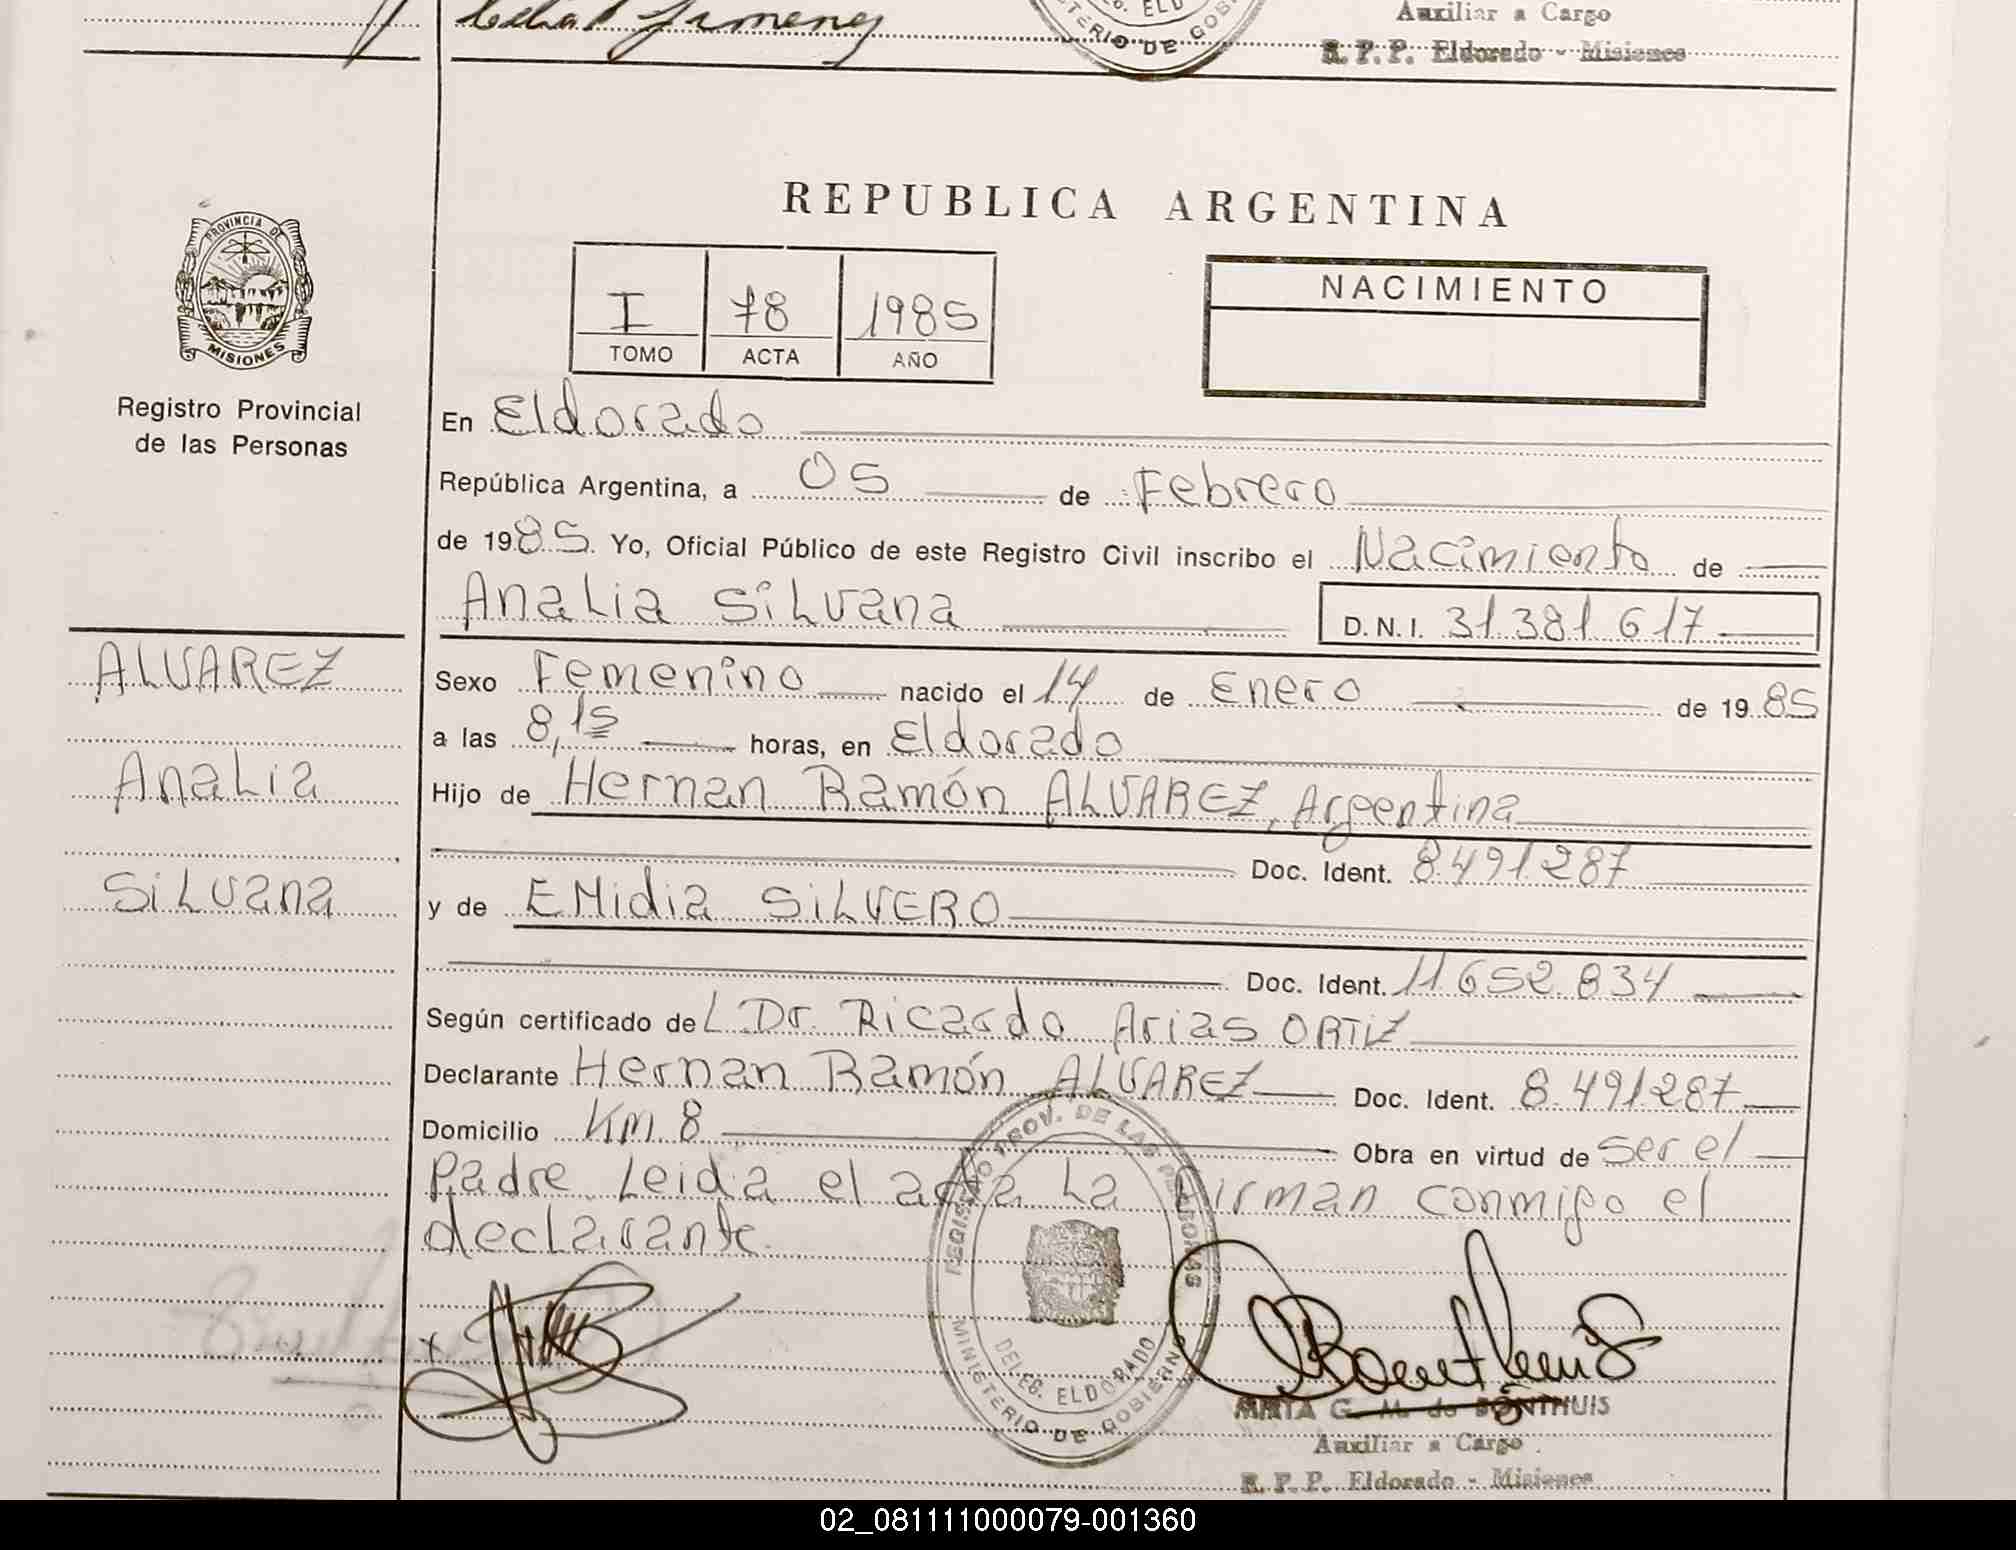 Auxiliar a Cargo
R. P. P. Eldorado - Misiones
REPUBLICA ARGENTINA
PROVINCIA DE
MISIONES
Registro Provincial
de las Personas
I 78 1985
TOMO ACTA AÑO
NACIMIENTO
En Eldorado
República Argentina, a 05 de Febrero
de 1985. Yo, Oficial Público de este Registro Civil inscribo el Nacimiento de
Analia Silvana D.N.I. 31.381.617
ALVAREZ
Analia
Silvana
Sexo Femenino nacido el 14 de Enero de 1985
a las 8,15 horas, en Eldorado
Hijo de Hernan Ramón ALVAREZ, Argentina
Doc. Ident. 8.491.287
y de EMidia SILVERO
Doc. Ident. 11.652.834
Según certificado del Dr. Ricardo Arias ORTIZ
Declarante Hernan Ramón ALVAREZ Doc. Ident. 8.491.287
Domicilio KM. 8 Obra en virtud de ser el
Padre. Leida el acta La Firman conmigo el
declarante.
REGISTRO PROV. DE LAS PERSONAS
DELEG. ELDORADO
MINISTERIO DE GOBIERNO
G. M. de BONTHUIS
Auxiliar a Cargo
R. P. P. Eldorado - Misiones
02_081111000079-001360